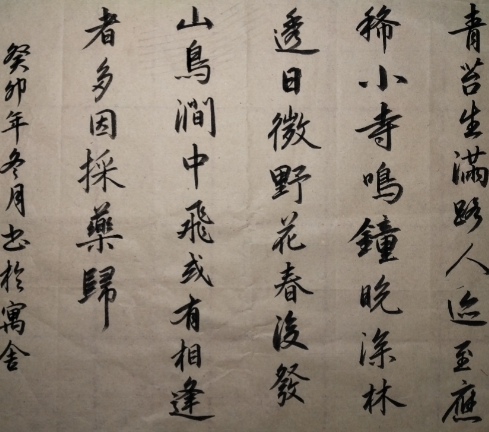 青苔生滿路人迹至應
稀小寺鳴鐘晚深林
透日微野花春後發
山鳥澗中飛或有相逢
者多因採藥歸
癸卯年冬月书於寓舍